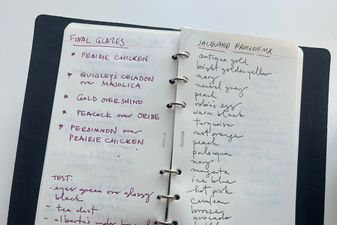 FINAL GLAZES
* PRAIRIE CHICKEN
* QUIGLEY'S CELADON
over MAJOLICA
* GOLD OVER SHINO
* PEACOCK over ORIBE
* PERSIMMON over
PRAIRIE CHICKEN
TEST:
- eyes green over glossy
black
- tea dust
- alberta's under
JACQUARD PROCION MX
antique gold
bright golden yellow
navy
neutral grey
peach
robin's egg
warm black
turquoise
rust orange
peach
palerine
navy
magenta
ice blue
hot pink
cerulean
bronze
avocado